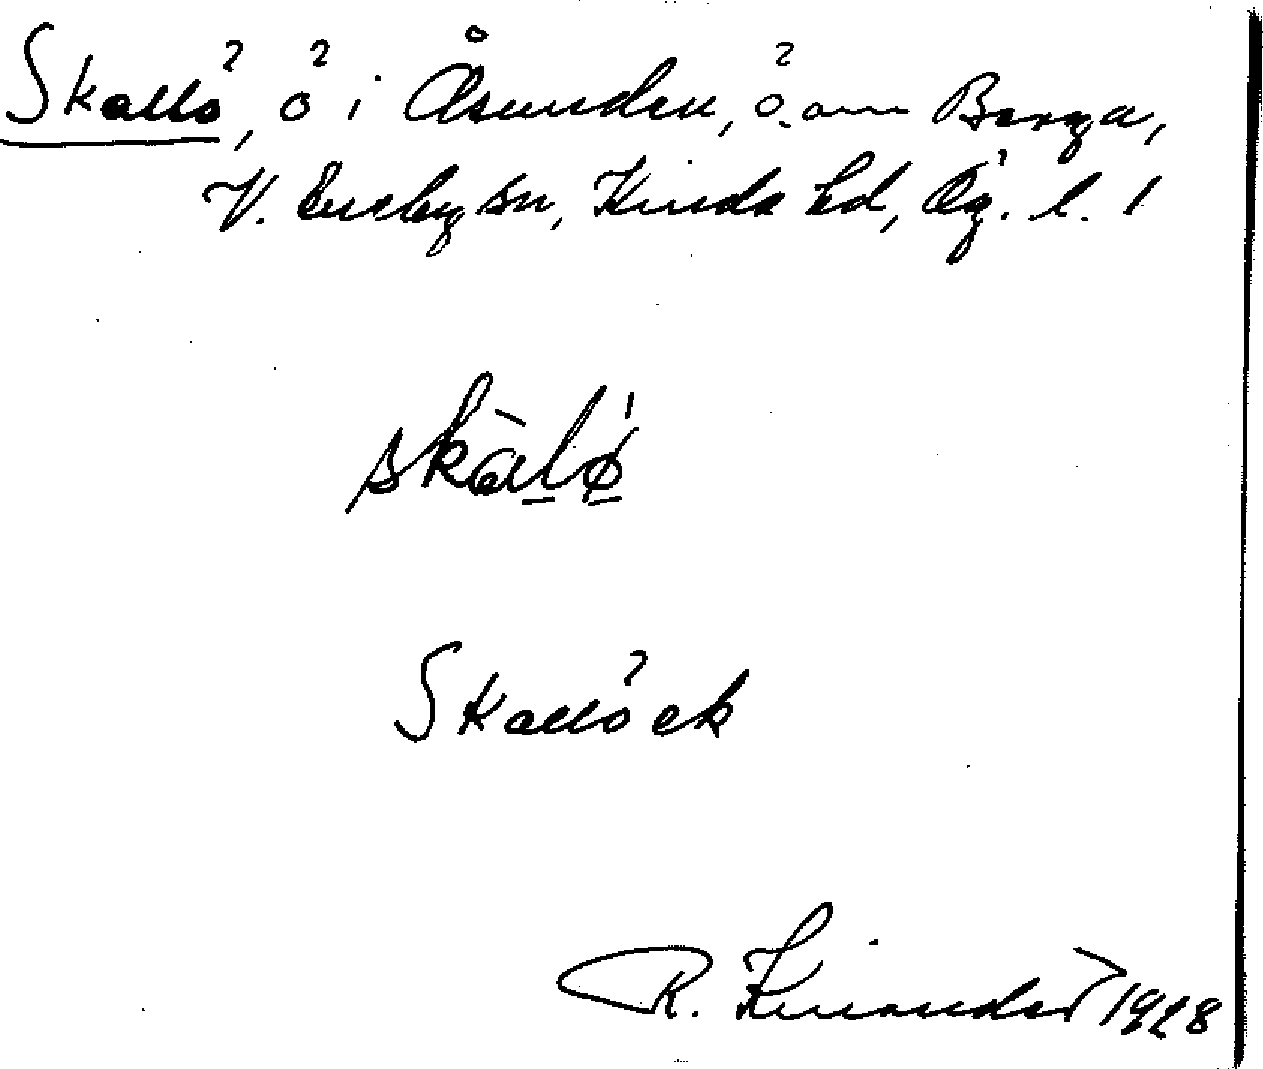 Skallö, ö i Åsunden, ö. om Borga,
V. Eneby sn, Kinda hd, Ög. l. 1
skàlǿ
Skallöck
R. Kinander 1928